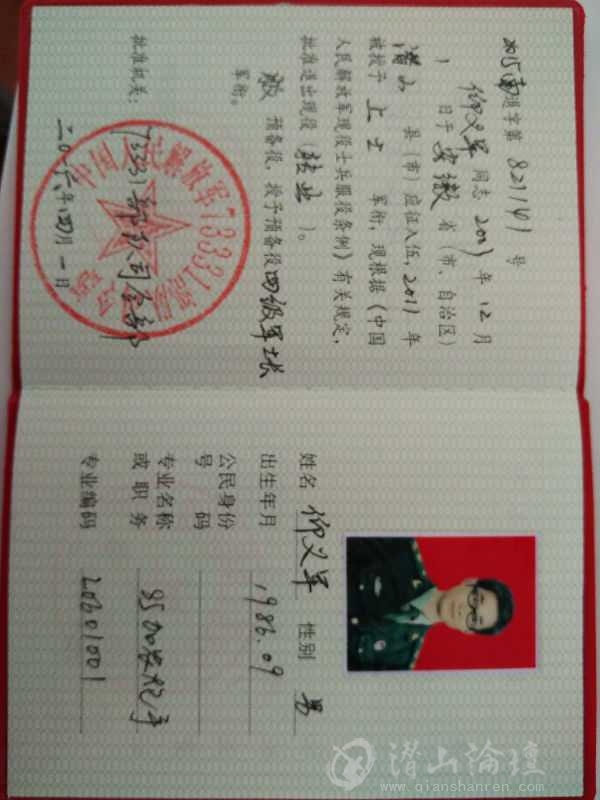 2015南退字第 821141 号
仰义军 同志 2003 年 12 月
1 日于 安徽 省（市、自治区）
潜山 县（市）应征入伍，2011 年
被授予 上士 军衔，现根据《中国
人民解放军现役士兵服役条例》有关规定，
批准退出现役（转业）。
服 预备役，授予预备役四级军士长
军衔。
批准机关：
73331部队司令部
二〇一六年四月一日
中国人民解放军73331部队
司令部
姓名 仰义军 性别 男
出生年月 1986.09
公民身份
号 码
专业名称
或 职 务 85加农炮手
专业编码
潜山論壇
www.qianshanren.com